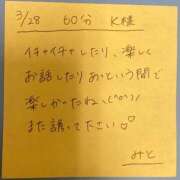 3/28 60分 K様
イチャイチャしたり、楽しく
お話したりあっという間で
楽しかったね(^o^)/
また誘って下さい♡
みと